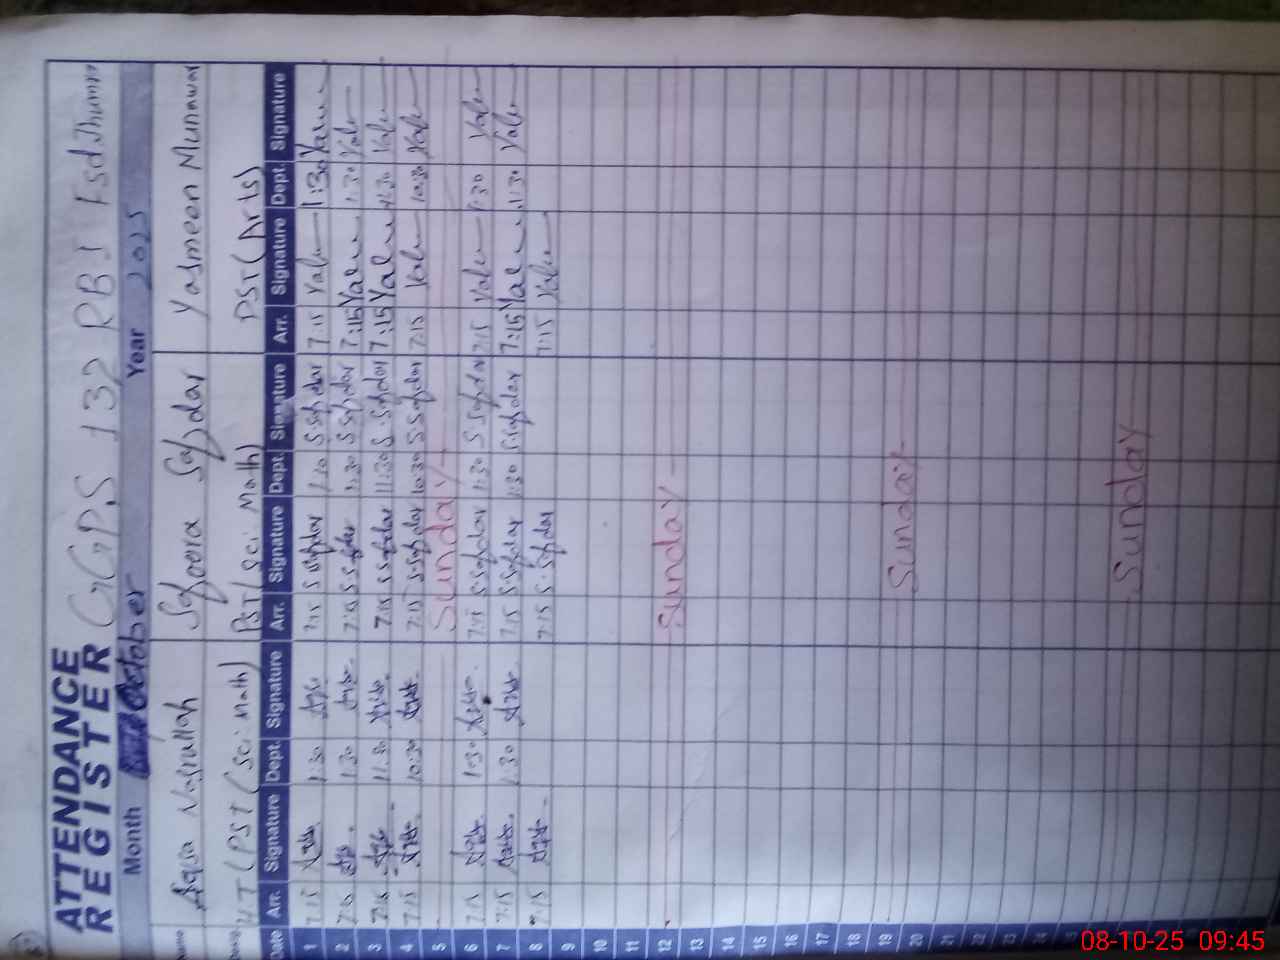 ATTENDANCE REGISTER GGPS 132 RBI Fsd.Jhumra
Month October Year 2025
Name Aqsa Nasrullah Safoora Safdar Yasmeen Munawar
Desig. HT (PST (Sci Math) PST (Sci Math) PST (Arts)
Date Arr. Signature Dept. Signature Arr. Signature Dept. Signature Arr. Signature Dept. Signature
1 7:15 1:30 7:15 S Safdar 1:30 S.Safdar 7:15 1:30
2 7:15 1:30 7:15 S Safdar 1:30 S Safdar 7:15 1:30
3 7:15 11:30 7:15 S Safdar 11:30 S.Safdar 7:15 11:30
4 7:15 10:30 7:15 S.Safdar 10:30 S Safdar 7:15 10:30
5 Sunday
6 7:15 1:30 7:15 S.Safdar 1:30 S Safdar 7:15 1:30
7 7:15 1:30 7:15 S.Safdar 1:30 S.Safdar 7:15 1:30
8 7:15 7:15 S.Safdar 7:15
9
10
11
12 Sunday
13
14
15
16
17
18
19 Sunday
20
21
22
23
24
Sunday
08-10-25 09:45